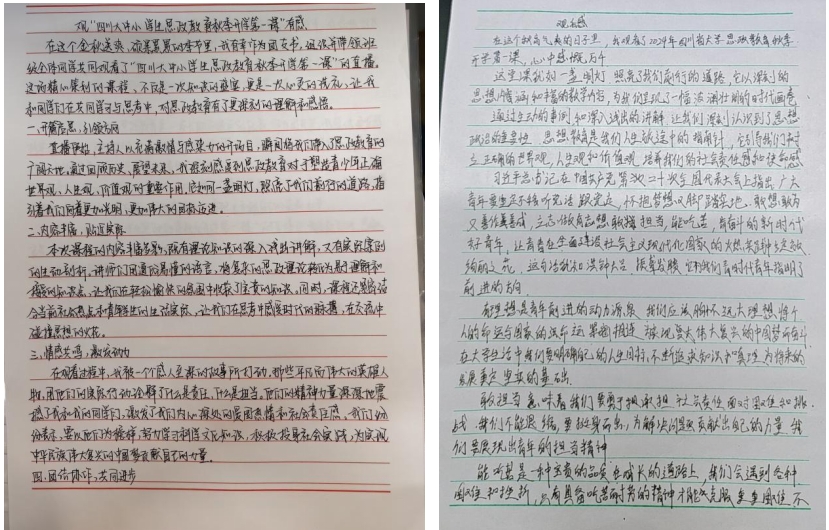 观“四川大中小学生思政教育秋季开学第一课”有感
在这个金秋送爽、硕果累累的季节里，我有幸作为团支书，组织并带领班
级全体同学共同观看了“四川大中小学生思政教育秋季开学第一课”的直播。
这场精心策划的课程，不仅是一次知识的盛宴，更是一次心灵的洗礼，让我
和同学们在共同学习与思考中，对思政教育有了更深刻的理解和感悟。
一、开篇启思，引领方向
直播伊始，主持人以充满激情与感染力的开场白，瞬间将我们带入了思政教育的
广阔天地。通过回顾历史、展望未来，我深刻感受到思政教育对于塑造青少年正确
世界观、人生观、价值观的重要作用。它如同一盏明灯，照亮了我们前行的道路，指
引着我们向着更加光明、更加伟大的目标迈进。
二、内容丰富，贴近实际
本次课程的内容丰富多彩，既有理论知识的深入浅出讲解，又有实际案例
的生动剖析。讲师们用通俗易懂的语言，将复杂的思政理论转化为易于理解和
接受的知识点，让我们在轻松愉快的氛围中收获了宝贵的知识。同时，课程还紧密结
合当前社会热点和青年学生的生活实际，让我们在思考中感受时代的脉搏，在交流中
碰撞思想的火花。
三、情感共鸣，激发动力
在观看过程中，我被一个个感人至深的故事所打动。那些平凡而伟大的英雄人
物，用他们的实际行动诠释了什么是责任，什么是担当。他们的精神力量深深地震
撼了我和我的同学们，激发了我们内心深处的爱国热情和社会责任感。我们纷
纷表示，要以他们为榜样，努力学习科学文化知识，积极投身社会实践，为实现
中华民族伟大复兴的中国梦贡献自己的力量。
四、团结协作，共同进步
观后感
在这个秋高气爽的日子里，我观看了2024年四川省大学思政教育秋季
开学第一课，心中感慨万千
这堂课就如一盏明灯 照亮了我们前行的道路，它以深刻的
思想内涵和丰富的教学内容，为我们呈现了一幅波澜壮阔的时代画卷
通过生动的事例和深入浅出的讲解 让我们深刻认识到了思想
政治的重要性 思想教育是我们人生航途中的指南针，它引导我们树
立正确的世界观、人生观和价值观 培养我们的社会责任感和使命感
习近平总书记在中国共产党第二十次全国代表大会上指出 广大
青年要坚定不移听党话、跟党走，怀抱梦想又脚踏实地，敢想敢为
又善作善成，立志做有理想 敢担当，能吃苦，肯奋斗的新时代
好青年，让青春在全面建设社会主义现代化国家的火热实践中绽放
绚丽之花。这句话就如洪钟大吕 振聋发聩 它为我们青年指明了
前进的方向
有理想是青年前进的动力源泉 我们应该胸怀远大理想 将个
人的命运与国家的命运紧密相连
在大学生活中我们要明确自己的人生目标，不断追求知识和真理 为将来的
发展奠定坚实的基础
敢担当 意味着我们要勇于承担社会责任 面对困难和挑
战，我们不能退缩，要挺身而出，为解决问题贡献出自己的力量 我
们要展现出青年的担当精神
能吃苦是一种宝贵的品质 在成长的道路上，我们会遇到各种
困难和挫折，只有具备吃苦耐劳的精神才能克服重重困难 不